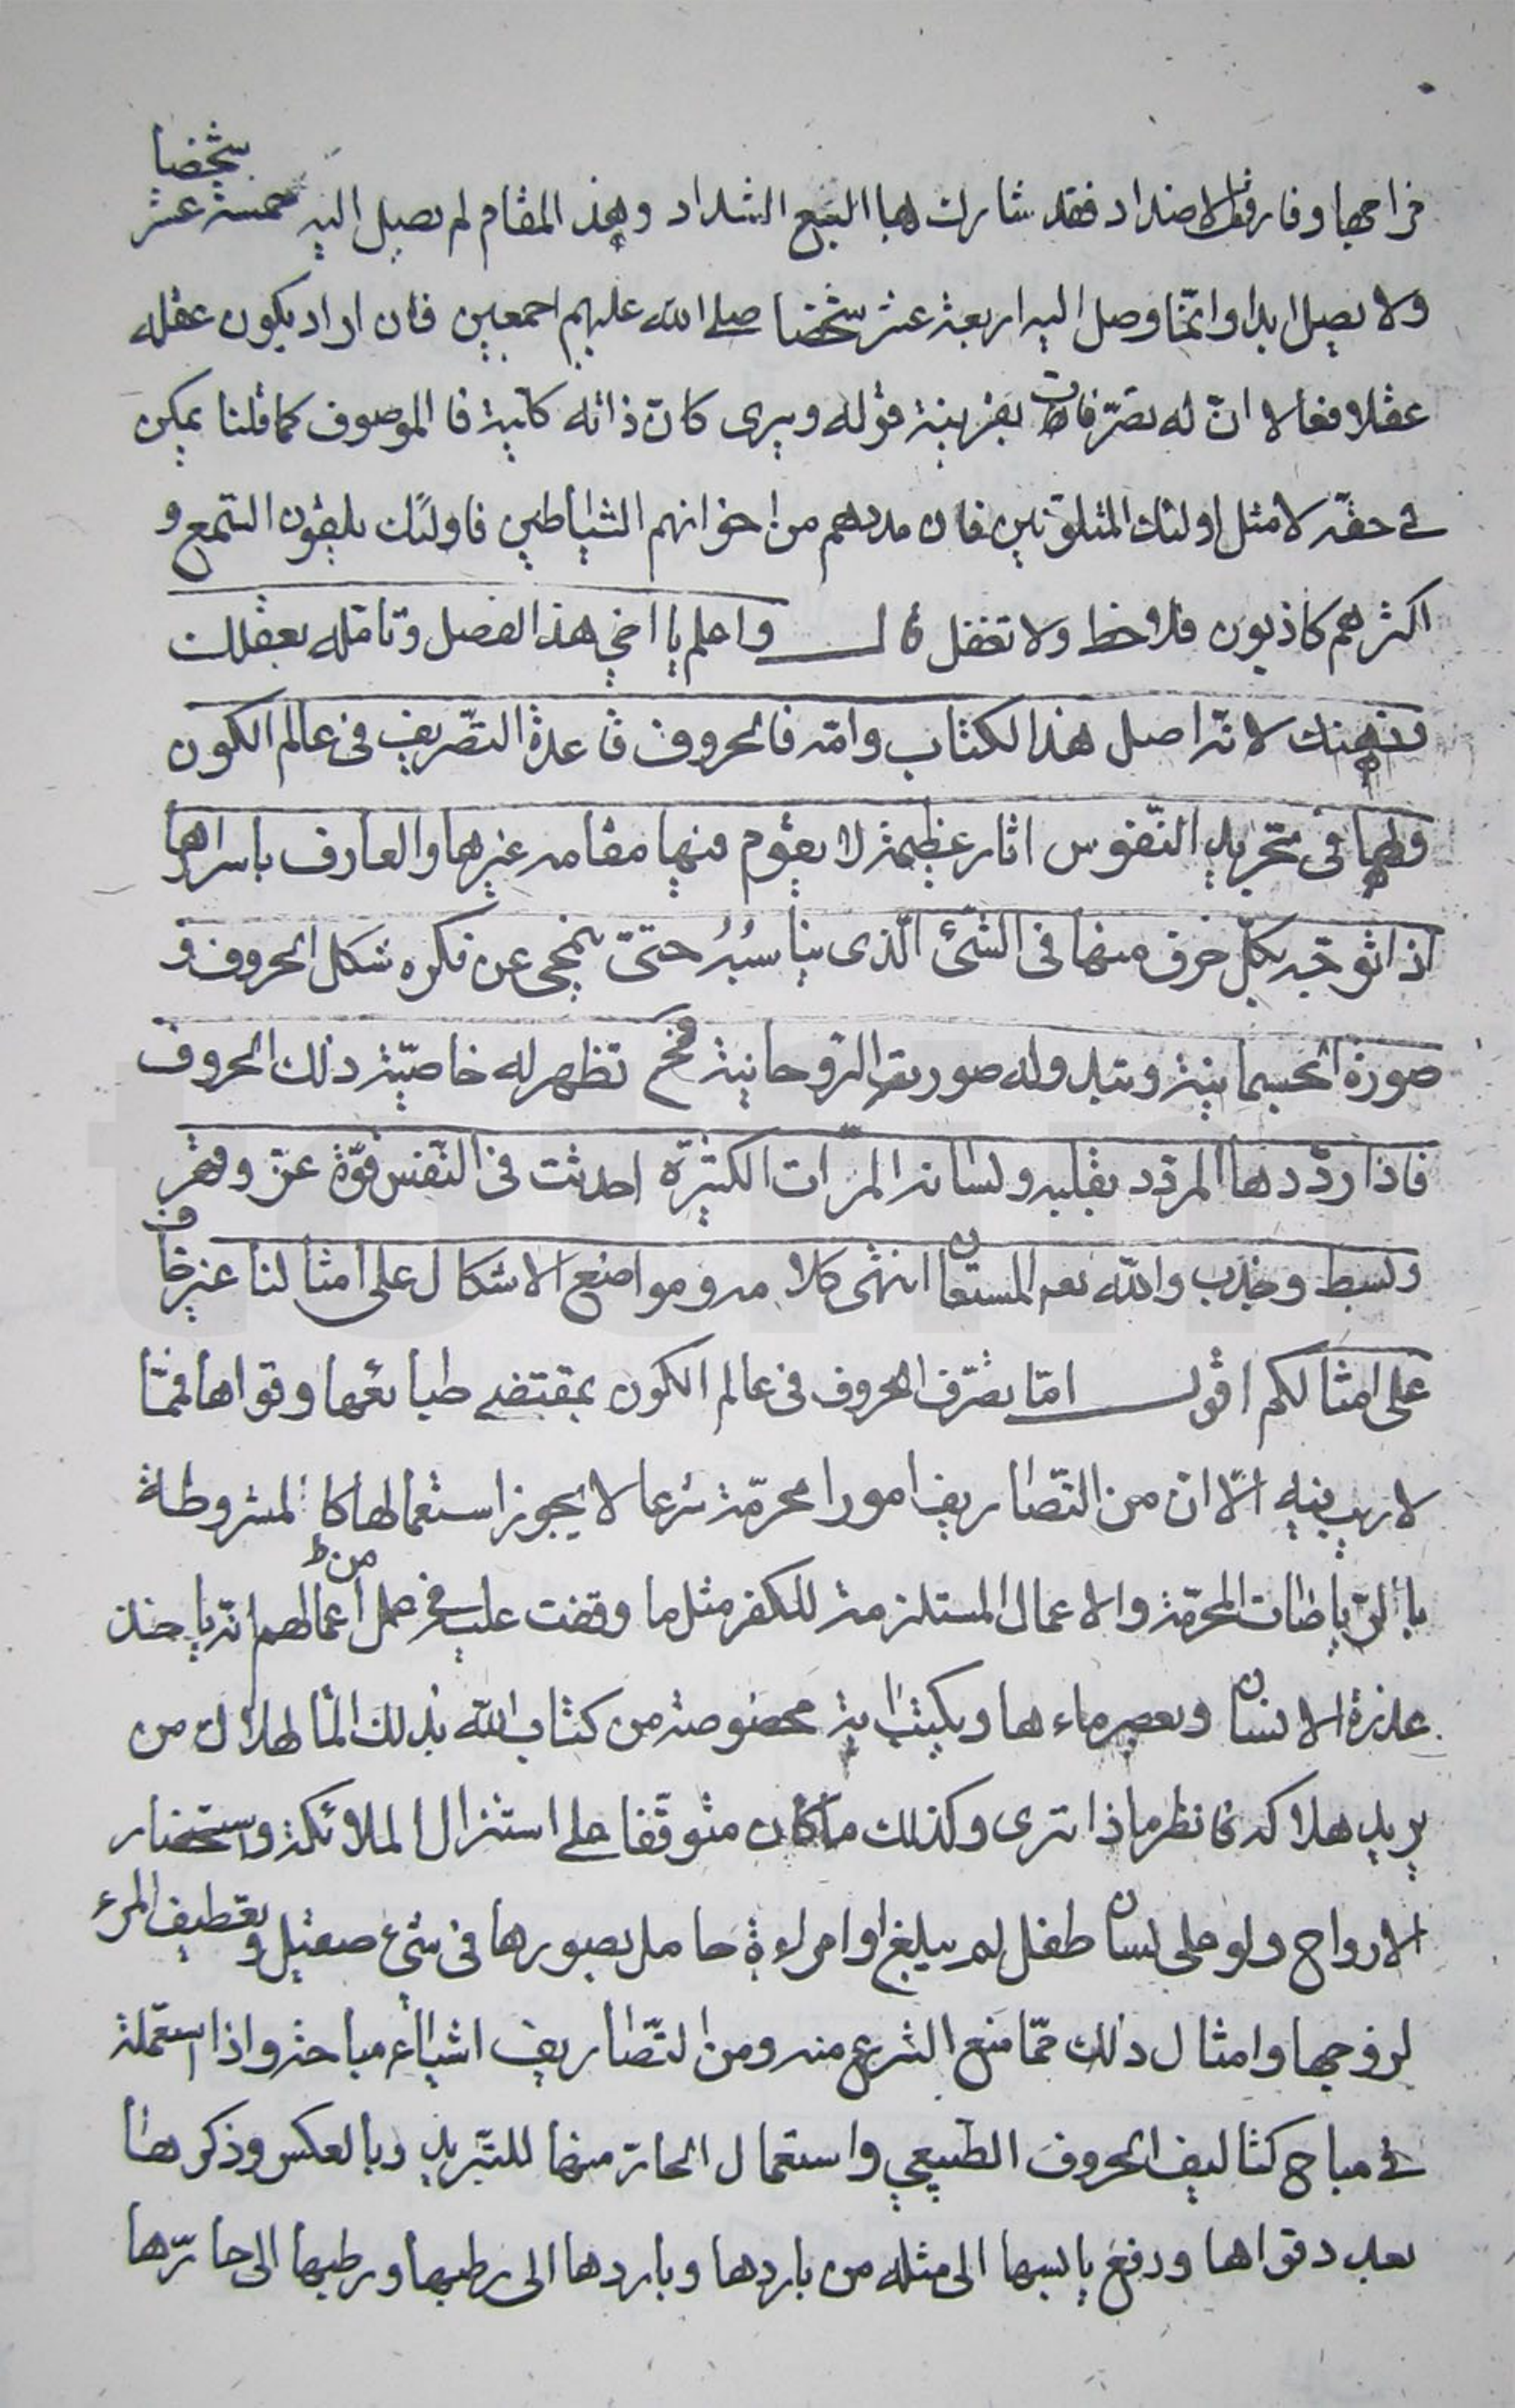 شخصا
مزاجها وفارقت الاضداد فقد شارك بها السبع الشداد وهذ المقام لم يصل اليه خمسة عشر
ولا يصل ابدا وانّما وصل اليه اربعة عشر شخصا صلى الله عليهم اجمعين فان اراد يكون عقله
عقلا فعالا انّ له تصرّفات بقرينة قوله ويرى كانّ ذاته كلّية فا الموصوف كما قلنا يمكن
فى حقّه لا مثل اولئك المتلوّنين فان مددهم من اخوانهم الشياطين فاولئك يلقون السّمع و
اكثرهم كاذبون فلاحظ ولا تغفل قال واعلم يا اخي هذا الفصل وتامّله بعقلك
وذهنك لانّه اصل هذا الكتاب وامّه فالحروف قاعدة التصّريف فى عالم الكون
ولها فى تجريد النّفوس اثار عظيمة لا يقوم منها مقامه غيرها والعارف باسرارها
اذا توجّه بكلّ حرف منها فى الشئ الّذى يناسبُهُ حتىّ ينمحى عن فكره شكل الحروف و
صورة الجسمانية ويتبد وله صورته الرّوحانية فح تظهر له خاصّية ذلك الحروف
فاذا ردّدها المردّد بقلبه ولسانه المرّات الكثيرة احدثت فى النّفس قوّة عزّ وقهر
وبسط وجذب والله نعم المستعان انتهى كلامه ومواضع الاشكال على امثالنا غير خاف
على امثالكم اقول امّا تصّرف الحروف فى عالم الكون بمقتضى طبائعها وقواها فممّا
لاريب فيه الّا ان من التصّاريف امورا محرّمة شرعا لا يجوز استعمالها كا المشروطة
باالرّياضات المحرّمة والاعمال المستلزمة للكفر مثل ما وقفت عليه فى عمل من اعمالهم انّه ياخذ
عذرة الانسان ويعصر ماءها ويكتب اية مخصوصة من كتاب الله بذلك الما لهلاك من
يريد هلاكه فانظر ماذا ترى وكذلك ما كان متوقّفا على استنزال الملائكة واستحضار
الارواح ولو على لسان طفل لم يبلغ او امراءة حامل بصورها فى شئ صقيل وتعطيف المرء
لزوجها وامثال ذلك ممّا منع الشرع منه ومن التّصاريف اشياء مباحة واذا استعملة
فى مباح كتاليف الحروف الطّبيعي واستعمال الحارّ منها للتبّريد وبا لعكس وذكرها
بعدد قواها ودفع يابسها الى مثله من باردها وباردها الى رطبها ورطبها الى حارّها